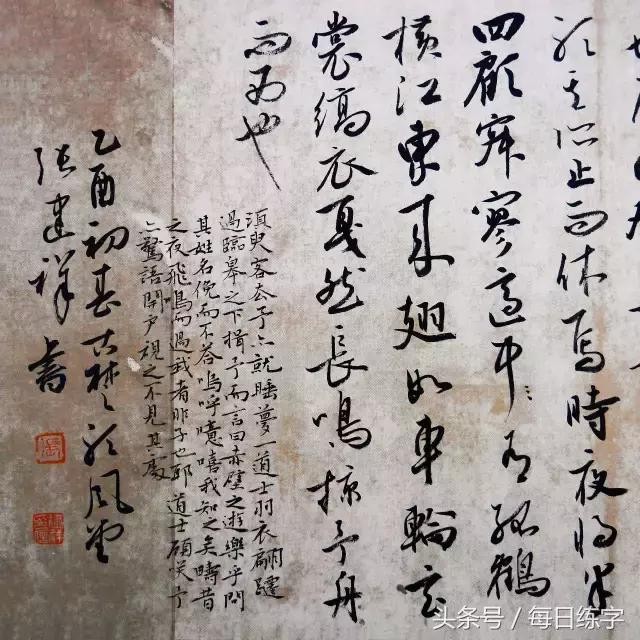 聽其所止而休焉時夜将半
四顧寂寥適中有孤鶴
横江東来翅如車輪玄
裳縞衣戛然長鳴掠予舟
而西也
須臾客去予亦就睡夢一道士羽衣翩躚
過臨皋之下揖予而言曰赤壁之遊樂乎問
其姓名俛而不答嗚呼噫嘻我知之矣疇昔
之夜飛鳴過我者非子也邪道士顧笑予
亦驚寤開戶視之不見其處
乙酉初春古楚聽風堂
張建祥書
头条号 / 每日练字